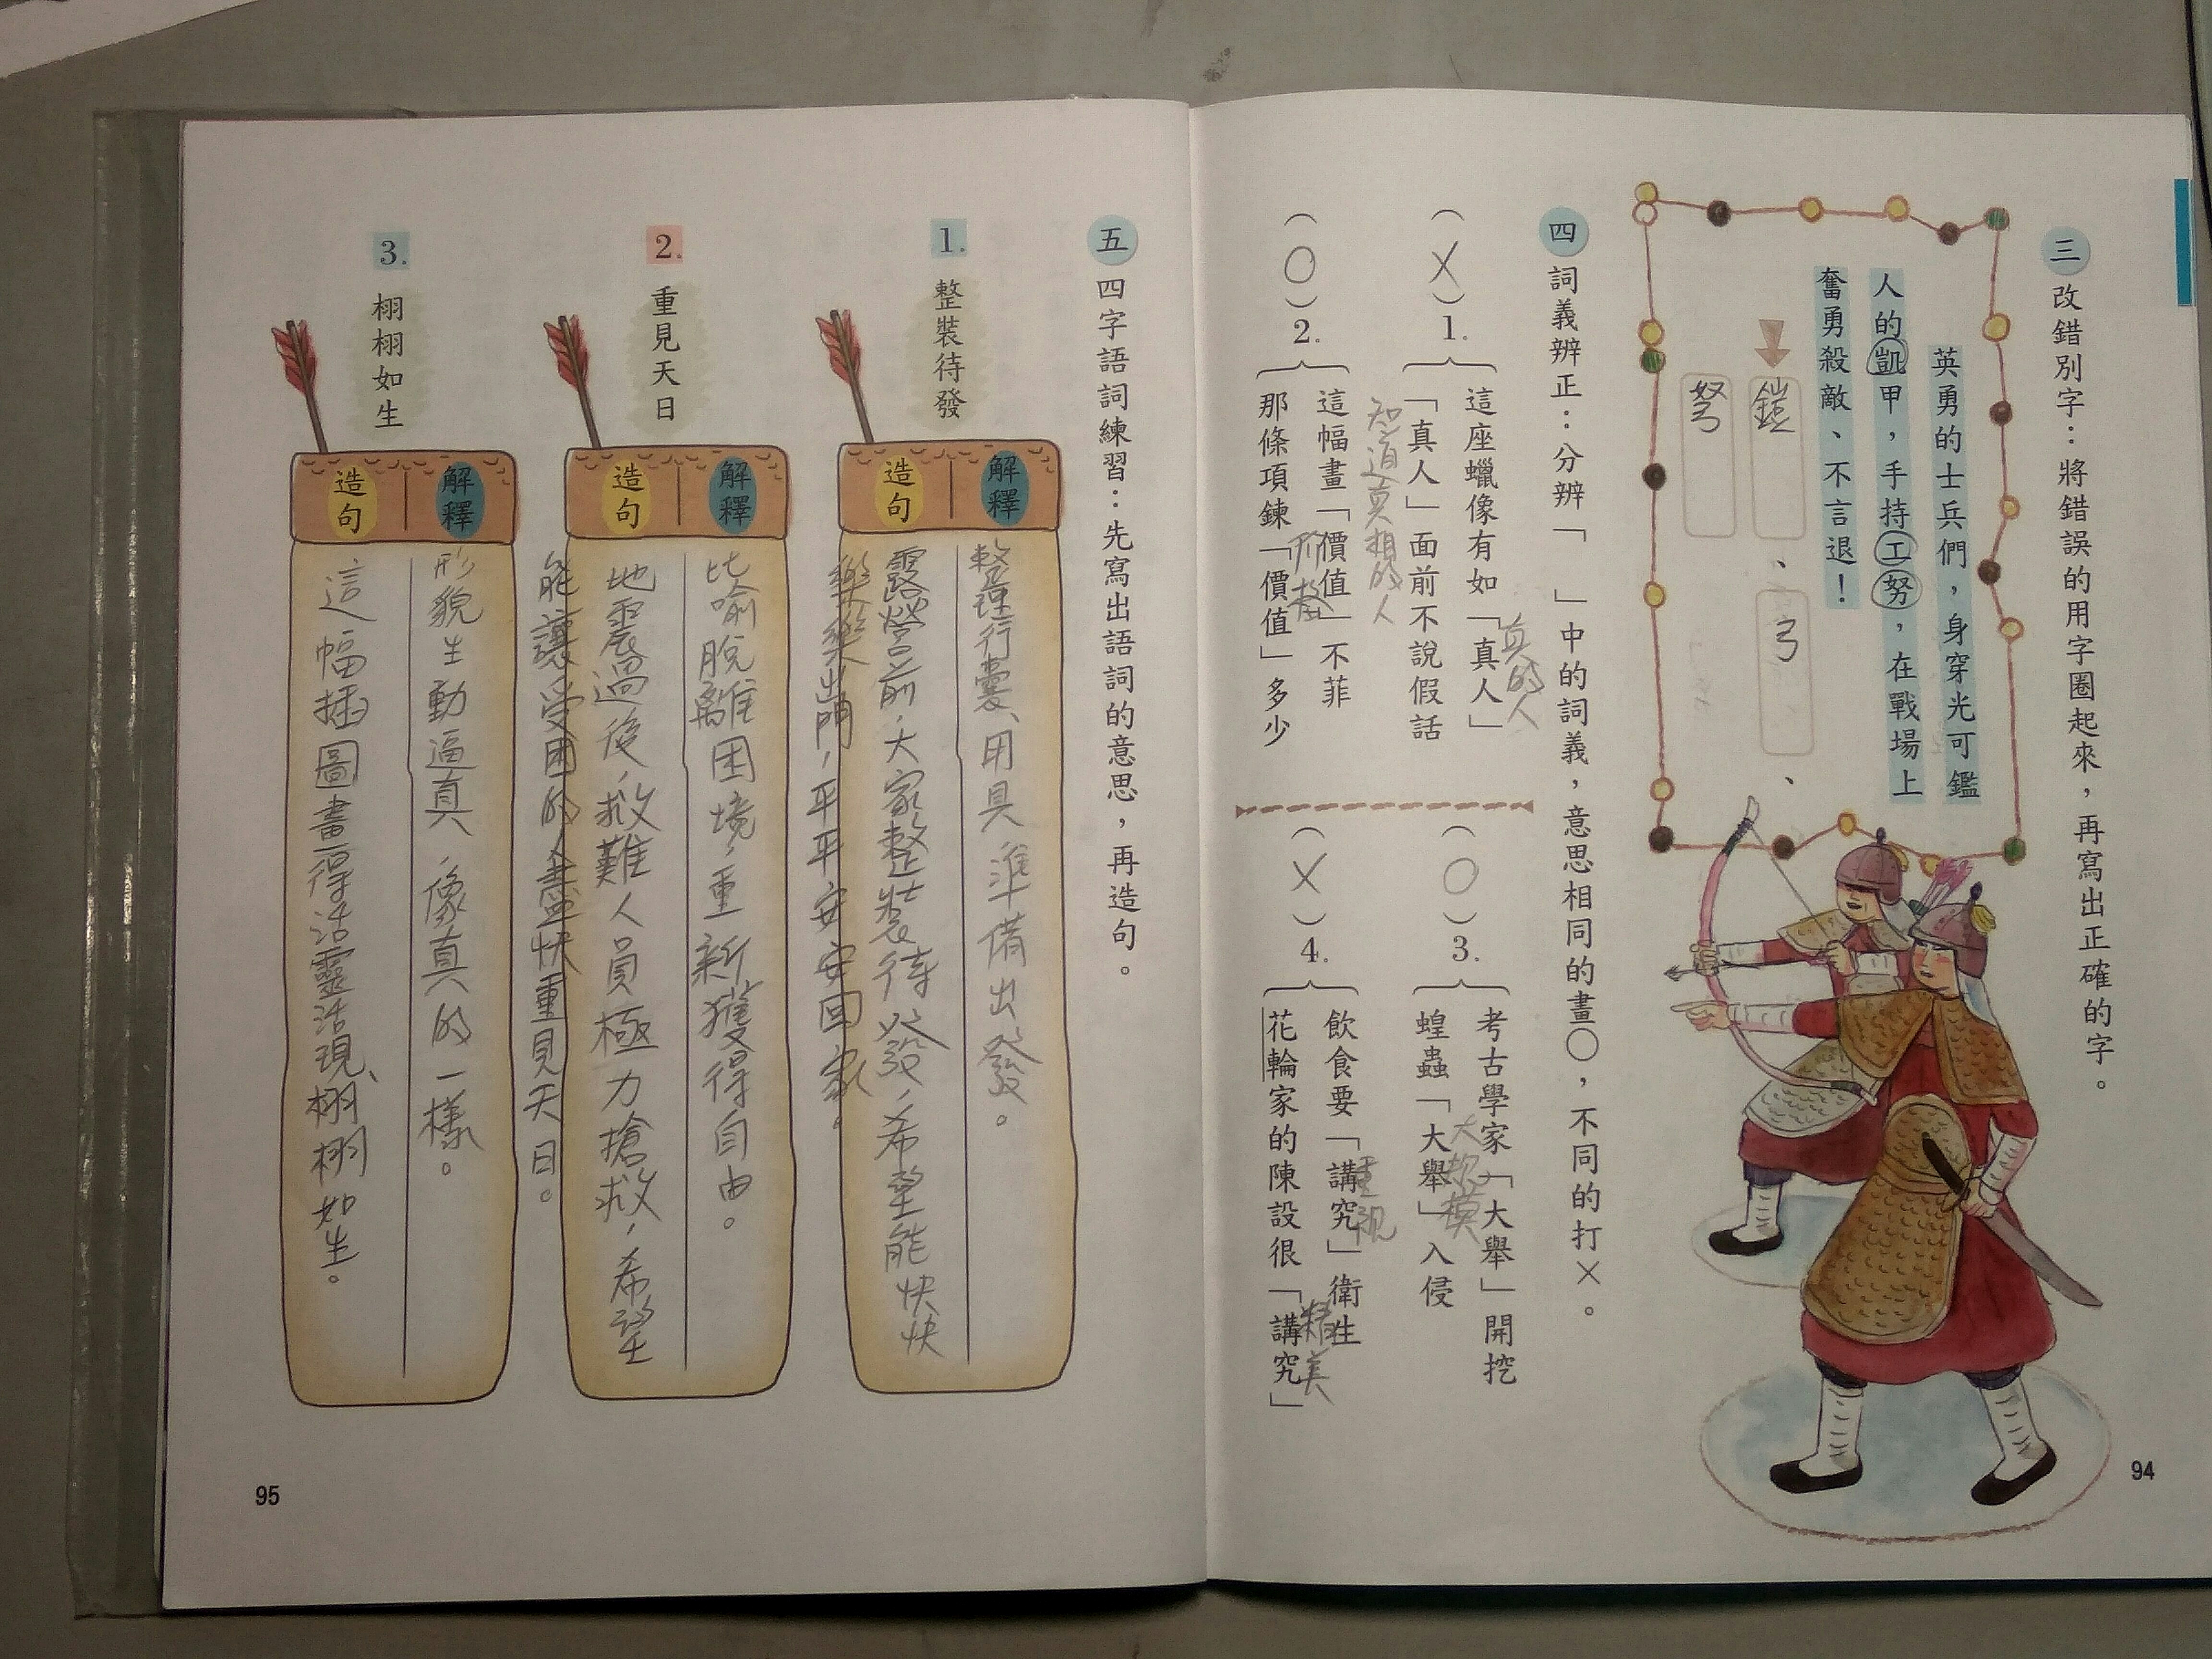 三 改錯別字：將錯誤的用字圈起來，再寫出正確的字。
英勇的士兵們，身穿光可鑑
人的凱甲，手持工努，在戰場上
奮勇殺敵、不言退！
鎧、弓、
弩
四 詞義辨正：分辨「 」中的詞義，意思相同的畫○，不同的打×。
（X）1.
這座蠟像有如「真人」
真的人
「真人」面前不說假話
知道真相的人
（○）2.
這幅畫「價值」不菲
那條項鍊「價值」多少
（○）3.
考古學家「大舉」開挖
蝗蟲「大舉」入侵
大規模
（X）4.
飲食要「講究」衛生
重視
花輪家的陳設很「講究」
精美
94
五 四字語詞練習：先寫出語詞的意思，再造句。
1. 整裝待發
解釋
整理行囊、用具準備出發。
造句
露營前，大家整裝待發，希望能快快
樂樂出門，平平安安回家。
2. 重見天日
解釋
比喻脫離困境，重新獲得自由。
造句
地震過後，救難人員極力搶救，希望
能讓受困的人盡快重見天日。
3. 栩栩如生
解釋
形貌生動逼真，像真的一樣。
造句
這幅插圖畫得活靈活現、栩栩如生。
95